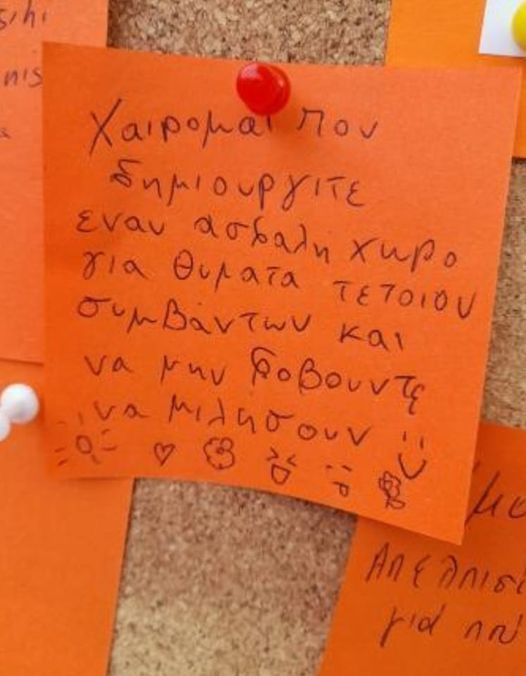 Χαιρομαι που
δημιουργιτε
εναν ασφαλη χωρο
για θυματα τετοιου
συμβάντων και
να μην φοβουντε
να μιλησουν
Απελπισ
για